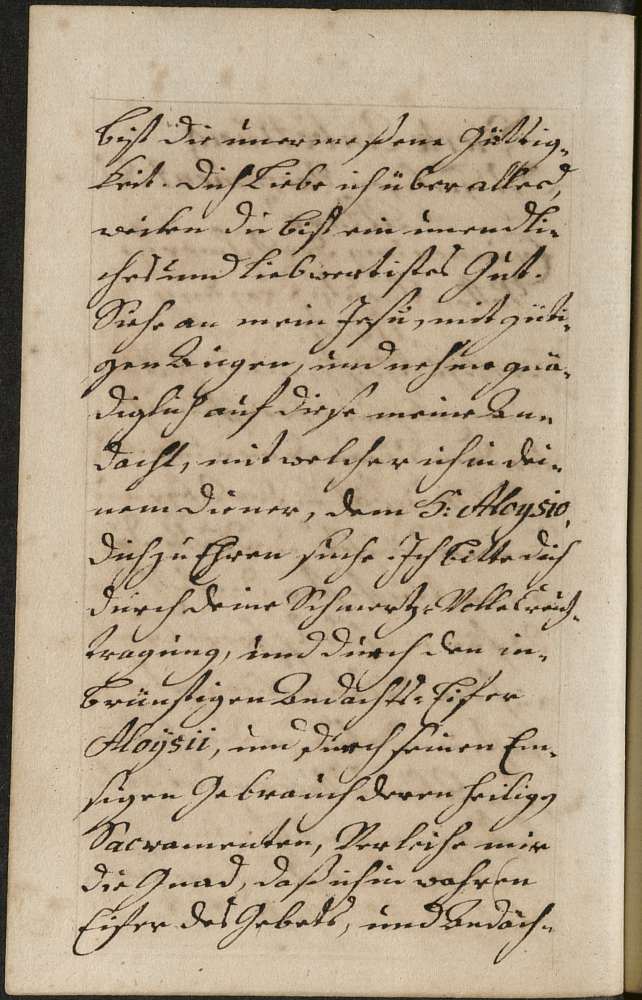 bist die unermeßene Güttig-
keit. Dich Liebe ich über alles,
weilen du bist ein unendli-
ches und liebwertistes Gut.
Siehe an mein Jesu, mit güti-
gen Augen, und nehme gnä-
diglich auf diese meine An-
dacht, mit welcher ich in dei-
nem diener, dem H: Aloysio,
dich zu Ehren suche. Ich bitte dich
durch deine Schmertz-Volle Creutz-
tragung, und durch den in-
brünstigen Andachts-Eifer
Aloÿsii, und durch seinen Em-
sigen Gebrauch deren heiligen
Sacramenten, Verleihe mir
die Gnad, daß ich in wahren
Eifer des Gebets, und Andäch-